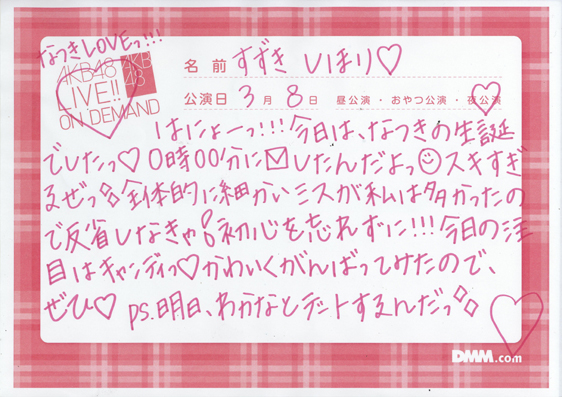 なつきLOVEっ!!!
AKB48
LIVE!!
ON DEMAND
AKB
48
名前 すずき しほり♡
公演日 3月 8日 昼公演・おやつ公演・夜公演
はにょーっ!!!今日は、なつきの生誕
でしたっ♡0時00分に✉したんだよっ☺スキすぎ
るぜっ 全体的に細かいミスが私は多かったの
で反省しなきゃ!初心を忘れずに!!!今日の注
目はキャンディっ♡かわいくがんばってみたので、
ぜひ♡ ps.明日、わかなとデートするんだっ
DMM.com